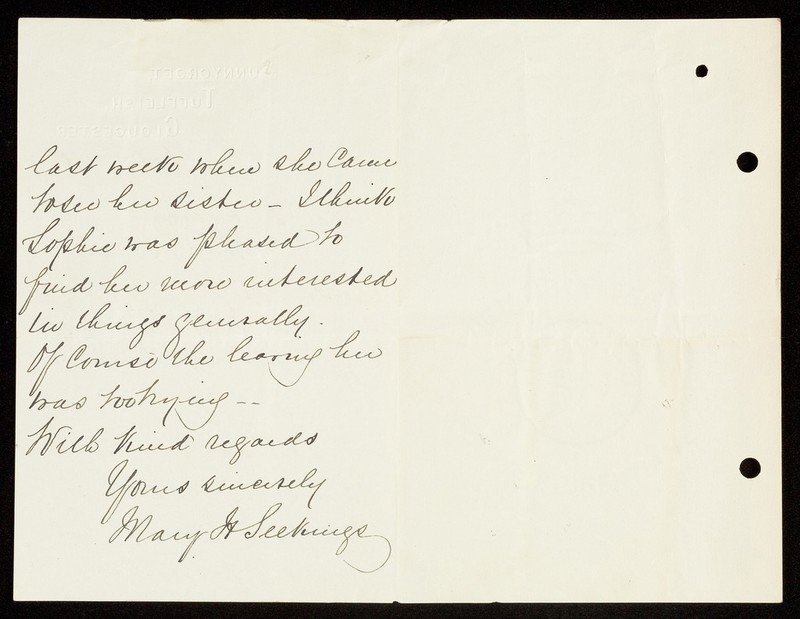 SUNNYCROFT
TUFFLEIGH
GLOUCESTER
last week when she came
to see her sister – I think
Sophie was pleased to
find her more interested
in things generally.
Of course the leaving her
was too trying --
With kind regards
Yours sincerely
Mary H Seekings